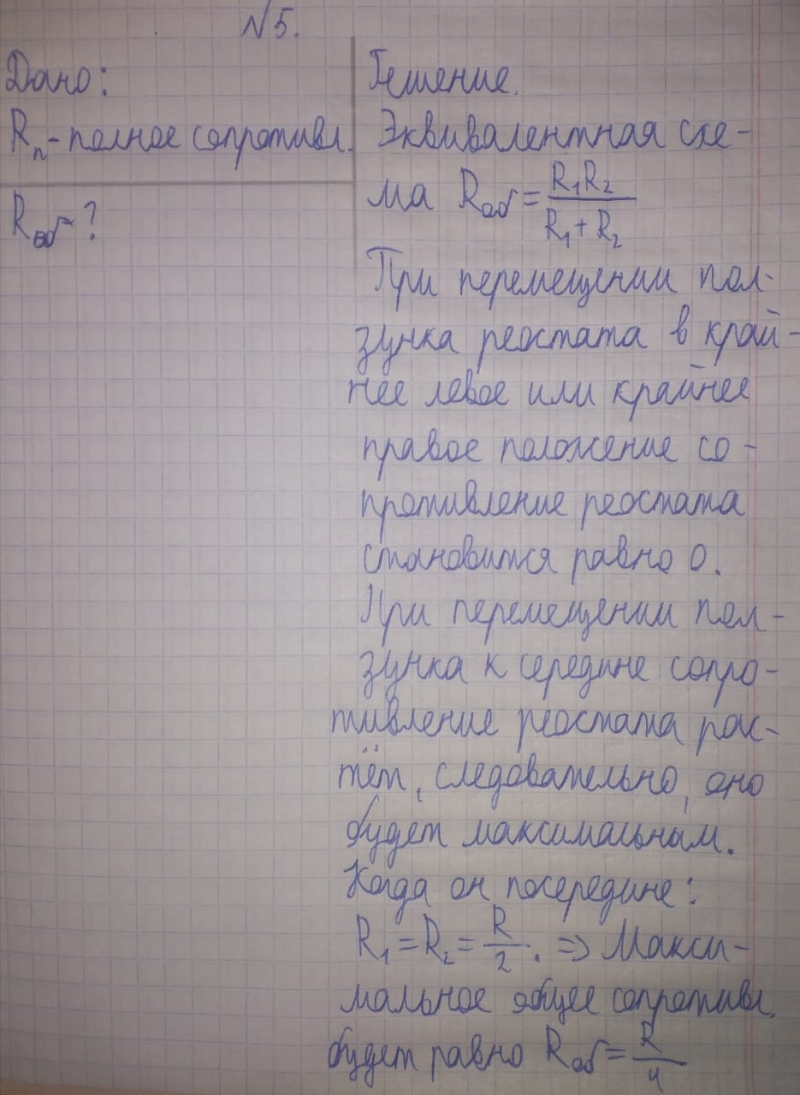 №5.
Дано:
Rп - полное сопротивл.
Rоб - ?
Решение.
Эквивалентная схе-
ма Rоб = R₁R₂ / R₁ + R₂
При перемещении пол-
зунка реостата в край-
нее левое или крайнее
правое положение со-
противление реостата
становится равно 0.
При перемещении пол-
зунка к середине сопро-
тивление реостата рас-
тёт, следовательно, оно
будет максимальным.
Когда он посередине:
R₁ = R₂ = R/2. => Макси-
мальное общее сопротивл.
будет равно Rоб = R/4